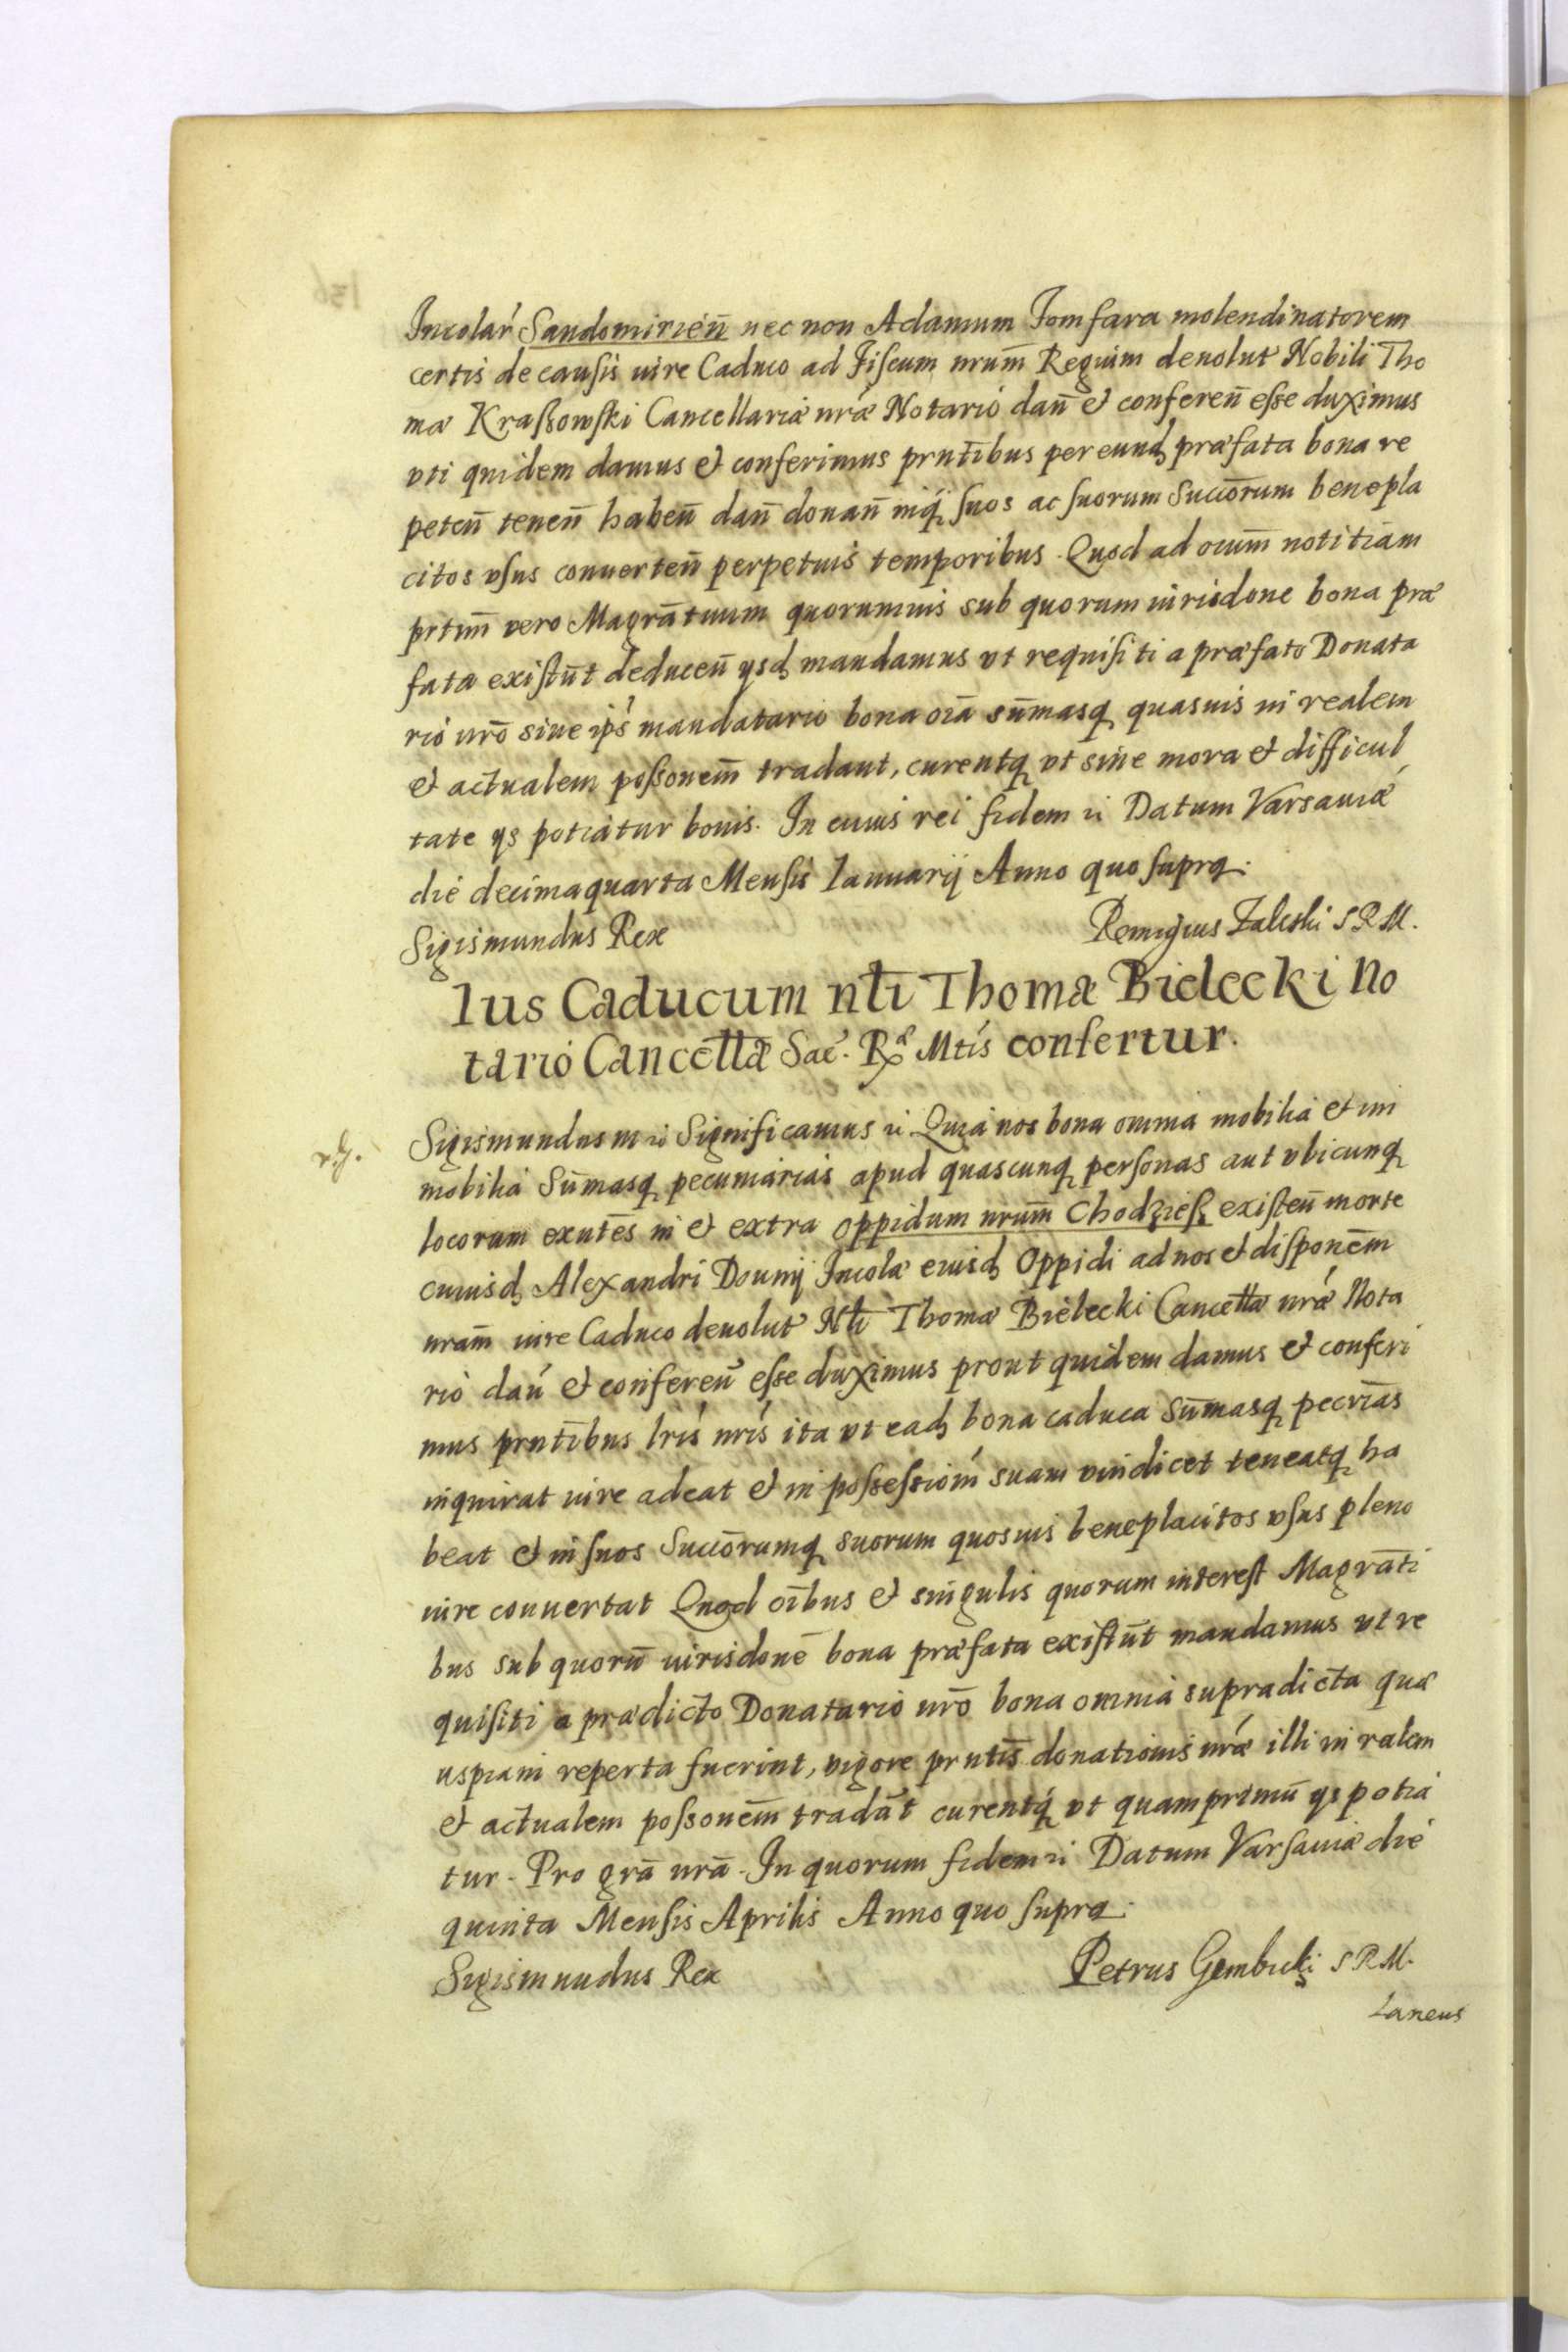 Incolaŕ Sandomirień nec non Adamum Fomfara molendinatorem
certis de causis iure Caduco ad Fiscum nrum̄ Regium deuolut Nobili Tho
mæ Kraszowski Cancellariæ nræ Notario dan̄ et conferen̄ esse duximus
vti quidem damus et conferimus prntībus per eund præfata bona re
peten̄ tenen̄ haben̄ dan̄ donan̄ inq suos ac suorum Succōrum benepla
citos vsus conuerten̄ perpetuis temporibus. Quod ad oium̄ notitiam
prtim̄ vero Magrātuum quorumuis sub quorum iurisdone bona præ
fata existūt deducen̄ ysd mandamus vt requisiti a præfato Donata
rio nrō siue ips mandatario bona oīa sūmasq quasuis in realem
et actualem possonem̄ tradant, curentq vt sine mora et difficul
tate ys potiatur bonis. In cuius rei fidem Datum Varsauiæ
die decima quarta Mensis Ianuarij Anno quo supra.
Sigismundus Rex Remigius Zaleski S R M.
Ius Caducum nłi Thomæ Bielecki No
tario Cancełłæ Sac. Rx Mtis confertur.
Sigismundus III Significamus Quia nos bona omnia mobilia et im
mobilia Sūmasq pecuniarias apud quascunq personas aut vbicunq
locorum exntēs in et extra oppidum nrum̄ Chodziesz existen̄ morte
cuiusd Alexandri Dounij Incolæ eiusd Oppidi ad nos et disponēm
nram̄ iure Caduco deuolut Nłi Thomæ Bielecki Cancełłæ nræ Nota
rio dań et conferen̄ esse duximus prout quidem damus et conferi
mus prntībus lrís nrís ita vt ead bona caduca Sūmasq pecriās
inquirat iure adeat et in possessioḿ suam vindicet teneatq ha
beat et in suos Succōrumq suorum quosuis beneplacitos vsus pleno
iure conuertat Quod oībus et singulis quorum interest Magrāti
bus sub quorū iurisdonē bona præfata existūt mandamus vt re
quisiti a prædicto Donatario nrō bona omnia supradicta quæ
uspiam reperta fuerint, vigore prntīs donationis nræ illi in ralem
et actualem possonem̄ tradāt curentq vt quamprimū ys potia
tur. Pro grā nrā. In quorum fidem Datum Varsauiæ die
quinta Mensis Aprilis Anno quo supra.
Sigismundus Rex Petrus Gembicki S R M.
Laneus